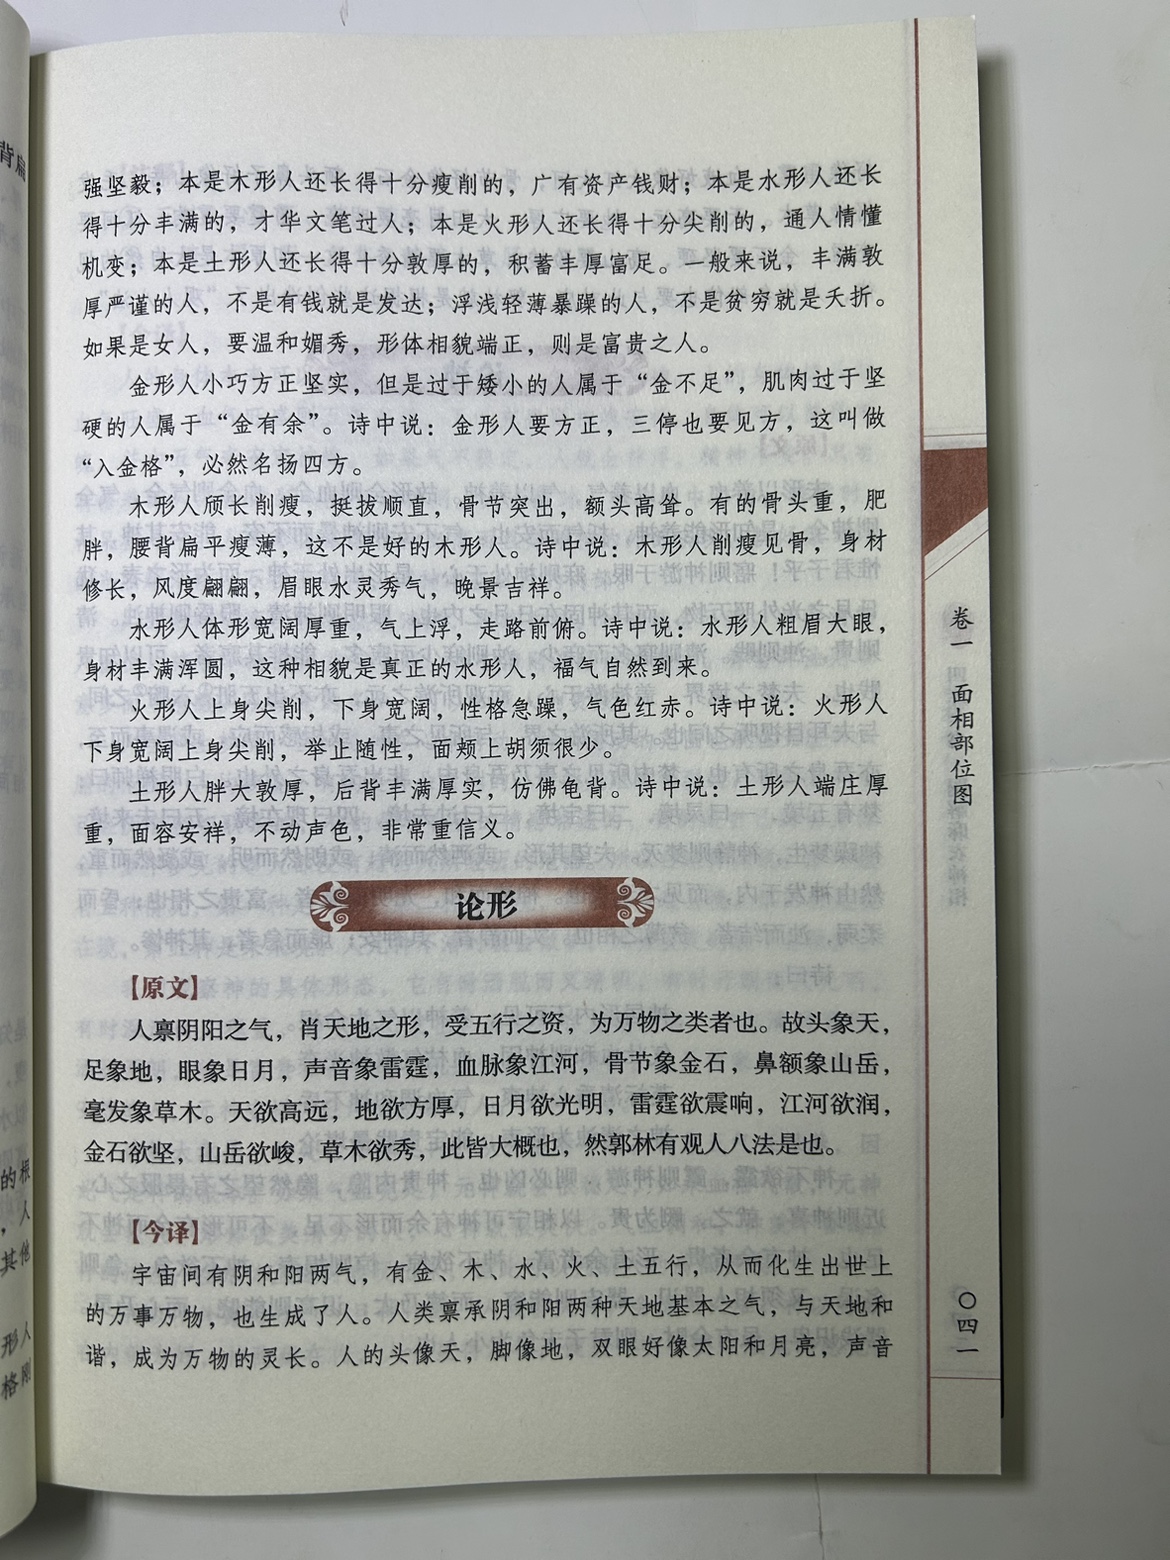 强坚毅；本是木形人还长得十分瘦削的，广有资产钱财；本是水形人还长
得十分丰满的，才华文笔过人；本是火形人还长得十分尖削的，通人情懂
机变；本是土形人还长得十分敦厚的，积蓄丰厚富足。一般来说，丰满敦
厚严谨的人，不是有钱就是发达；浮浅轻薄暴躁的人，不是贫穷就是夭折。
如果是女人，要温和媚秀，形体相貌端正，则是富贵之人。
金形人小巧方正坚实，但是过于矮小的人属于“金不足”，肌肉过于坚
硬的人属于“金有余”。诗中说：金形人要方正，三停也要见方，这叫做
“入金格”，必然名扬四方。
木形人颀长削瘦，挺拔顺直，骨节突出，额头高耸。有的骨头重，肥
胖，腰背扁平瘦薄，这不是好的木形人。诗中说：木形人削瘦见骨，身材
修长，风度翩翩，眉眼水灵秀气，晚景吉祥。
水形人体形宽阔厚重，气上浮，走路前俯。诗中说：水形人粗眉大眼，
身材丰满浑圆，这种相貌是真正的水形人，福气自然到来。
火形人上身尖削，下身宽阔，性格急躁，气色红赤。诗中说：火形人
下身宽阔上身尖削，举止随性，面颊上胡须很少。
土形人胖大敦厚，后背丰满厚实，仿佛龟背。诗中说：土形人端庄厚
重，面容安祥，不动声色，非常重信义。
论形
【原文】
人禀阴阳之气，肖天地之形，受五行之资，为万物之类者也。故头象天，
足象地，眼象日月，声音象雷霆，血脉象江河，骨节象金石，鼻额象山岳，
毫发象草木。天欲高远，地欲方厚，日月欲光明，雷霆欲震响，江河欲润，
金石欲坚，山岳欲峻，草木欲秀，此皆大概也，然郭林有观人八法是也。
【今译】
宇宙间有阴和阳两气，有金、木、水、火、土五行，从而化生出世上
的万事万物，也生成了人。人类禀承阴和阳两种天地基本之气，与天地和
谐，成为万物的灵长。人的头像天，脚像地，双眼好像太阳和月亮，声音
卷一 面相部位图
〇四一
背扁
的根
，人
其他
形人
格刚